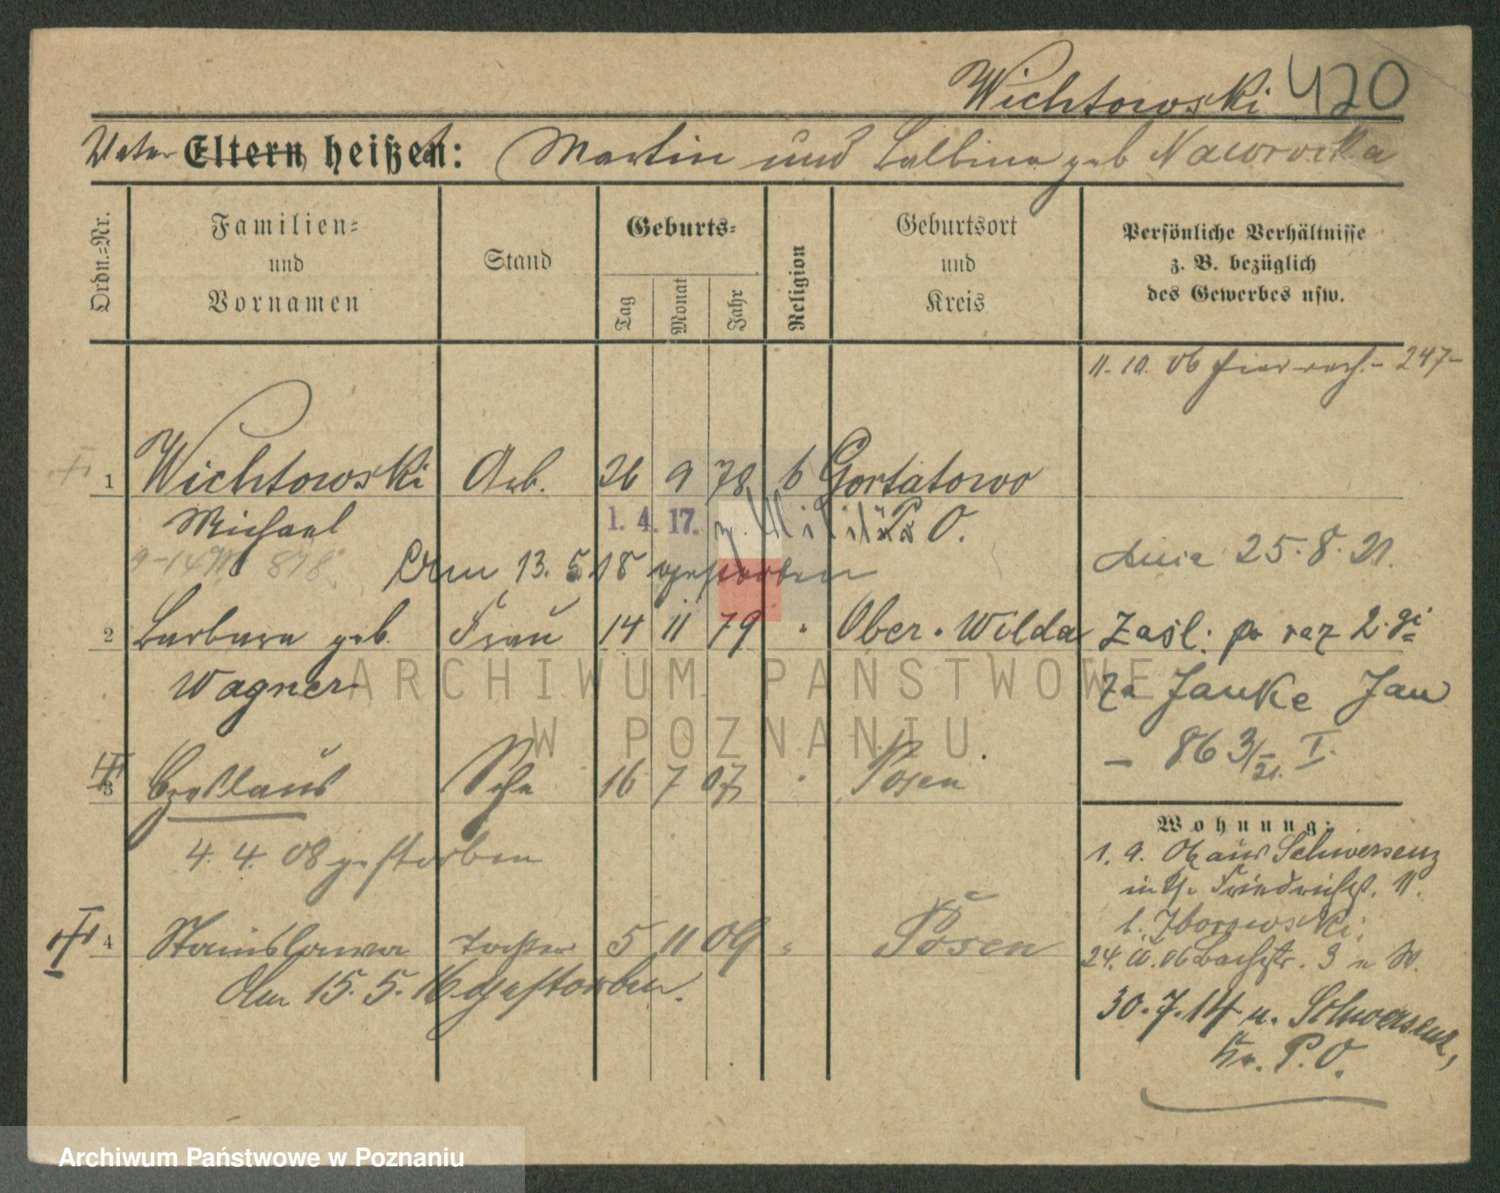 Wichtowski 420
Vater Eltern heißen: Martin und Balbina geb Nawrocka
Ordn.-Nr.
Familien-
und
Vornamen
Stand
Geburts-
Tag
Monat
Jahr
Religion
Geburtsort
und
Kreis
Persönliche Verhältnisse
z. B. bezüglich
des Gewerbes usw.
11. 10. 06 - 247-
1 Wichtowski Arb. 26 9 78 6 Gortatowo
Michael 1. 4. 17. z. Militär P. O.
13. 5. 18 gestorben
dnia 25. 8. 21.
2 Barbara geb. Frau 14 11 79 " Ober-Wilda
Wagner
Zaśl. po raz 2-gi
za Janke Jan
- 86 3/21. I.
3 Czeslaus Sohn 16 7 07 " Posen
4. 4. 08 gestorben
4 Stanislawa Tochter 5 11 09 " Posen
Am 15. 5. 16 gestorben.
Wohnung:
1. 9. 06 aus Schwersenz
11.
24. 10. 06 Bachstr. 3 n W.
30. 7. 14 n. Schwersenz,
Kr. P. O.
ARCHIWUM PAŃSTWOWE
W POZNANIU
Archiwum Państwowe w Poznaniu